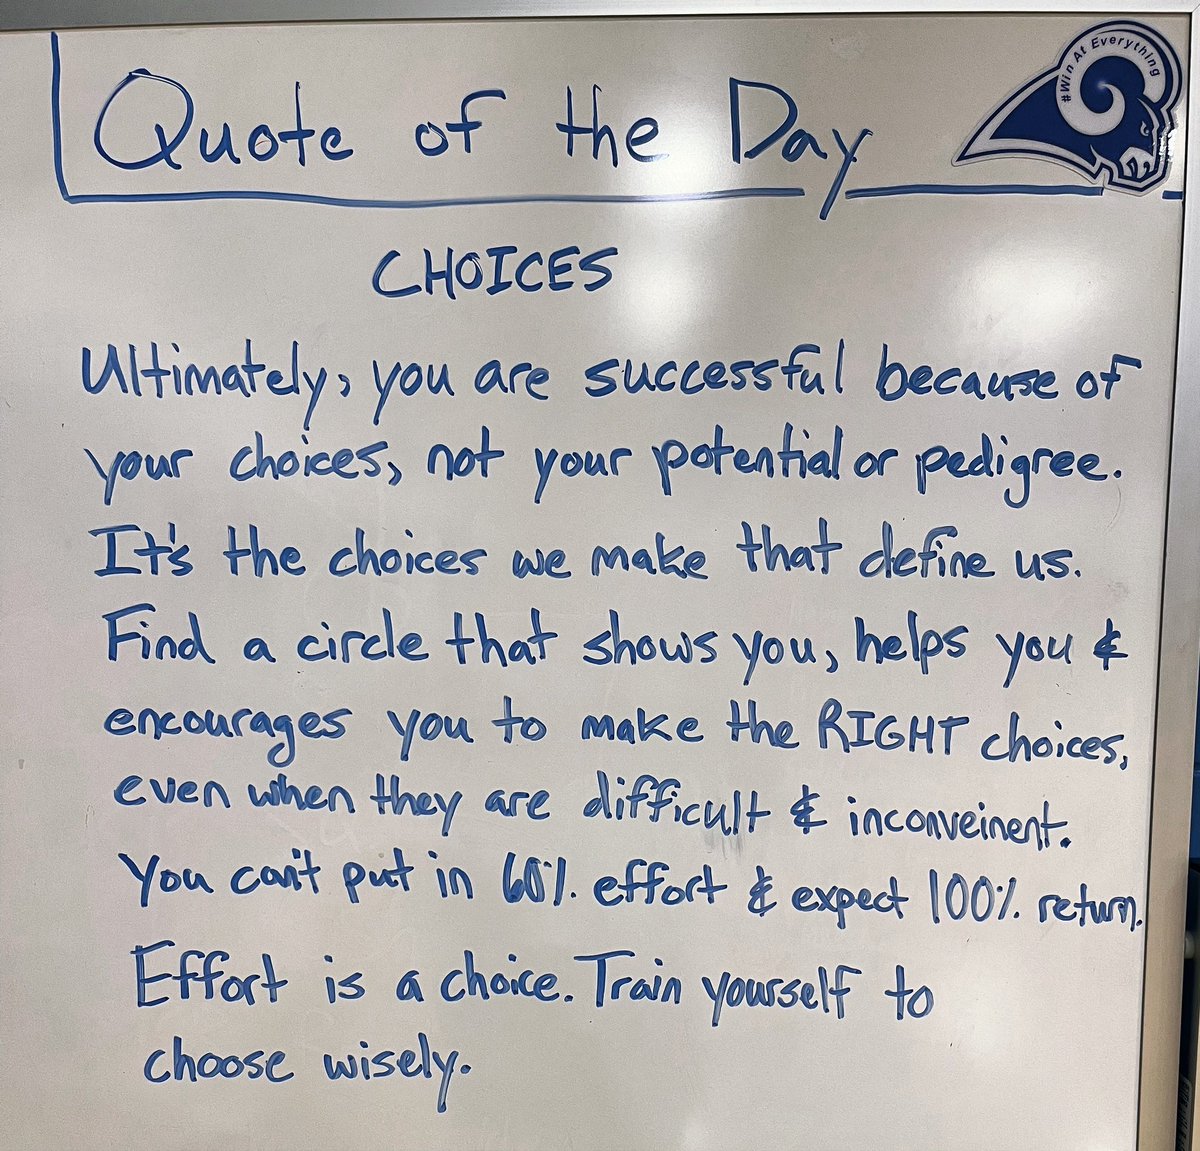 Quote of the Day
#Win At Everything
CHOICES
Ultimately, you are successful because of
your choices, not your potential or pedigree.
It's the choices we make that define us.
Find a circle that shows you, helps you &
encourages you to make the RIGHT choices,
even when they are difficult & inconveinent.
You can't put in 60% effort & expect 100% return.
Effort is a choice. Train yourself to
choose wisely.